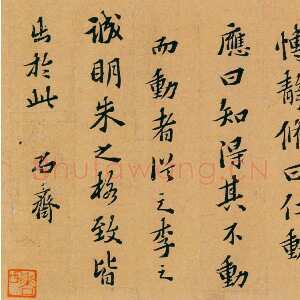 愽静脩曰仁
應曰知得其不動
而動者從之李之
誠明朱之格致皆
出於此
石齋
shufawang.CN